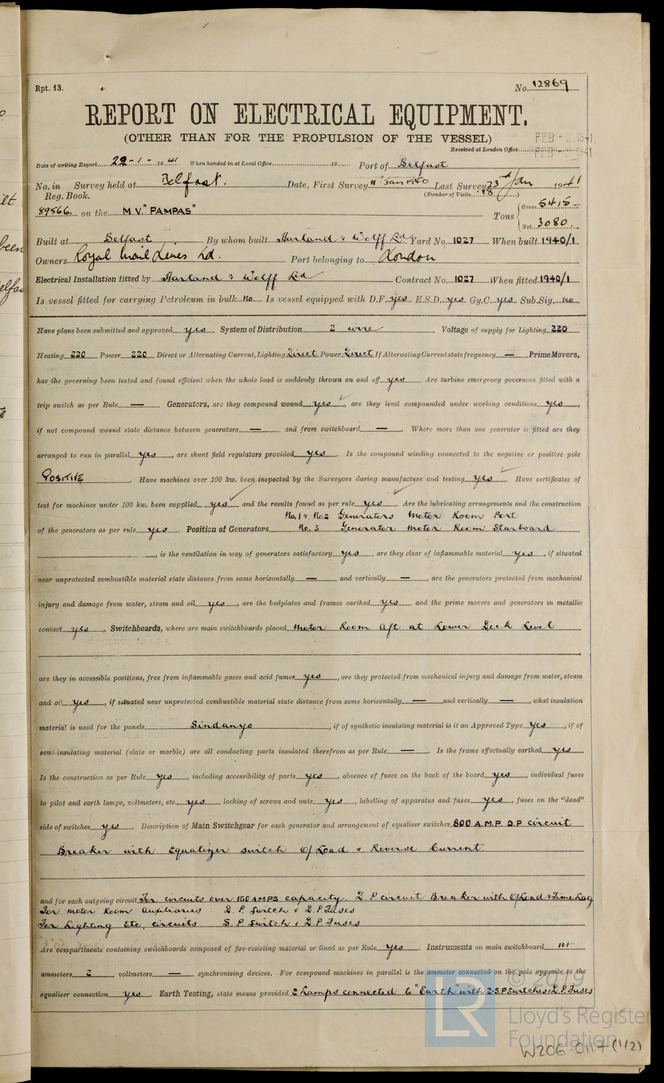 Rpt. 13. No. 12869
REPORT ON ELECTRICAL EQUIPMENT.
(OTHER THAN FOR THE PROPULSION OF THE VESSEL)
FEB 1941
Received at London Office
Date of writing Report 29-1-1941 When handed in at Local Office 19 Port of Belfast
No. in Survey held at Belfast. Date, First Survey 11th Jan 1940 Last Survey 23rd Jan 1941
Reg. Book. (Number of Visits 18)
89566 on the M.V. "PAMPAS" Tons Gross 5415 Net 3080
Built at Belfast By whom built Harland & Wolff Ltd Yard No. 1027 When built 1940/1
Owners Royal Mail Lines Ld. Port belonging to London
Electrical Installation fitted by Harland & Wolff Ltd Contract No. 1027 When fitted 1940/1
Is vessel fitted for carrying Petroleum in bulk no Is vessel equipped with D.F. yes E.S.D. yes Gy.C. yes Sub.Sig. no
Have plans been submitted and approved yes System of Distribution 2 wire Voltage of supply for Lighting 220
Heating 220 Power 220 Direct or Alternating Current, Lighting Direct Power Direct If Alternating Current state frequency — Prime Movers,
has the governing been tested and found efficient when the whole load is suddenly thrown on and off yes Are turbine emergency governors fitted with a
trip switch as per Rule — Generators, are they compound wound yes, are they level compounded under working conditions yes,
if not compound wound state distance between generators — and from switchboard —. Where more than one generator is fitted are they
arranged to run in parallel yes, are shunt field regulators provided yes. Is the compound winding connected to the negative or positive pole
Positive. Have machines over 100 kw. been inspected by the Surveyors during manufacture and testing yes Have certificates of
test for machines under 100 kw. been supplied yes and the results found as per rule yes Are the lubricating arrangements and the construction
No. 1 & No. 2 Generators Motor Room Port
of the generators as per rule yes Position of Generators No. 3 Generator Motor Room Starboard
, is the ventilation in way of generators satisfactory yes are they clear of inflammable material yes, if situated
near unprotected combustible material state distance from same horizontally — and vertically —, are the generators protected from mechanical
injury and damage from water, steam and oil yes, are the bedplates and frames earthed yes and the prime movers and generators in metallic
contact yes. Switchboards, where are main switchboards placed Motor Room Aft at Lower Deck Level
are they in accessible positions, free from inflammable gases and acid fumes yes, are they protected from mechanical injury and damage from water, steam
and oil yes, if situated near unprotected combustible material state distance from same horizontally — and vertically —, what insulation
material is used for the panels Sindanyo, if of synthetic insulating material is it an Approved Type yes, if of
semi-insulating material (slate or marble) are all conducting parts insulated therefrom as per Rule —. Is the frame effectually earthed yes
Is the construction as per Rule yes, including accessibility of parts yes, absence of fuses on the back of the board yes, individual fuses
to pilot and earth lamps, voltmeters, etc., yes locking of screws and nuts yes, labelling of apparatus and fuses yes, fuses on the "dead"
side of switches yes. Description of Main Switchgear for each generator and arrangement of equaliser switches 800 A.M.P. D.P circuit
Breaker with Equalizer switch O/Load & Reverse Current
and for each outgoing circuit For circuits over 150 AMPS capacity. D.P circuit Breaker with O/Load & Time Lag
For motor Room Auxiliaries D.P. Switch & D.P. Fuses
For Lighting Etc. circuits S.P. Switch & D.P. Fuses
Are compartments containing switchboards composed of fire-resisting material or lined as per Rule yes. Instruments on main switchboard
ammeters 2 voltmeters — synchronising devices. For compound machines in parallel is the ammeter connected on the pole opposite to the
equaliser connection yes Earth Testing, state means provided 2 Lamps connected to "Earth" with 2-S.P. Switches & D.P. Fuses
© 2019
LR
Lloyd's Register
Foundation
W206-0117 (1/2)